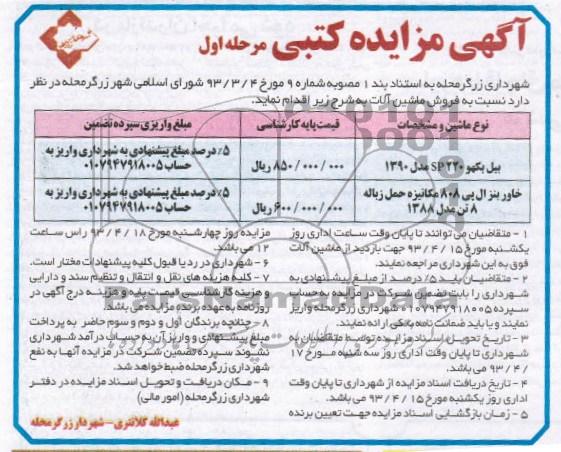 آگهی مزایده کتبی مرحله اول
شهرداری زرگرمحله به استناد بند 1 مصوبه شماره ۹ مورخ ۹۳/۳/۴ شورای اسلامی شهر زرگرمحله در نظر
دارد نسبت به فروش ماشین آلات به شرح زیر اقدام نماید.
نوع ماشین و مشخصات
قیمت پایه کارشناسی
مبلغ واریزی سپرده تضمین
بیل بکهو SP۲۲۰ مدل ۱۳۹۰
۸۵۰/۰۰۰/۰۰۰ ریال
۵٪ درصد مبلغ پیشنهادی به شهرداری واریز به
حساب ۰۱۰۷۹۴۷۹۱۸۰۰۵
خاور بنز ال پی ۸۰۸ مکانیزه حمل زباله
۸ تن مدل ۱۳۸۸
۶۰۰/۰۰۰/۰۰۰ ریال
۵٪ درصد مبلغ پیشنهادی به شهرداری واریز به
حساب ۰۱۰۷۹۴۷۹۱۸۰۰۵
۱ - متقاضیان می توانند تا پایان وقت ساعت اداری روز
یکشنبه مورخ ۹۳/۴/۱۵ جهت بازدید از ماشین آلات
فوق به این شهرداری مراجعه نمایند.
۲ - متقاضیان باید ۵٪ درصد از مبلغ پیشنهادی به
شهرداری را بابت تضمین شرکت در مزایده به حساب
سپرده ۰۱۰۷۹۴۷۹۱۸۰۰۵ شهرداری زرگرمحله واریز
نمایند و یا باید ضمانت نامه بانکی ارائه نمایند.
۳ - تاریخ تحویل اسناد مزایده توسط متقاضیان به
شهرداری تا پایان وقت اداری روز سه شنبه مورخ ۱۷
/۹۳/۴ می باشد.
۴ - تاریخ دریافت اسناد مزایده از شهرداری تا پایان وقت
اداری روز یکشنبه مورخ ۹۳/۴/۱۵ می باشد.
۵ - زمان بازگشایی اسناد مزایده جهت تعیین برنده
مزایده روز چهارشنبه مورخ ۹۳/۴/۱۸ راس ساعت
۱۲ می باشد.
۶ - شهرداری در رد یا قبول کلیه پیشنهادات مختار است.
۷ - کلیه هزینه های نقل و انتقال و تنظیم سند و دارایی
و هزینه کارشناسی قیمت پایه و هزینه درج آگهی در
روزنامه به عهده برنده مزایده می باشد.
۸ - چنانچه برندگان اول و دوم و سوم حاضر به پرداخت
مبلغ پیشنهادی و واریز آن به حساب درآمد شهرداری
نشوند سپرده تضمین شرکت در مزایده آنها به نفع
شهرداری زرگرمحله ضبط خواهد شد.
۹ - مکان دریافت و تحویل اسناد مزایده در دفتر
شهرداری زرگرمحله (امور مالی)
عبدالله کلانتری - شهردار زرگرمحله
ParsNamadData